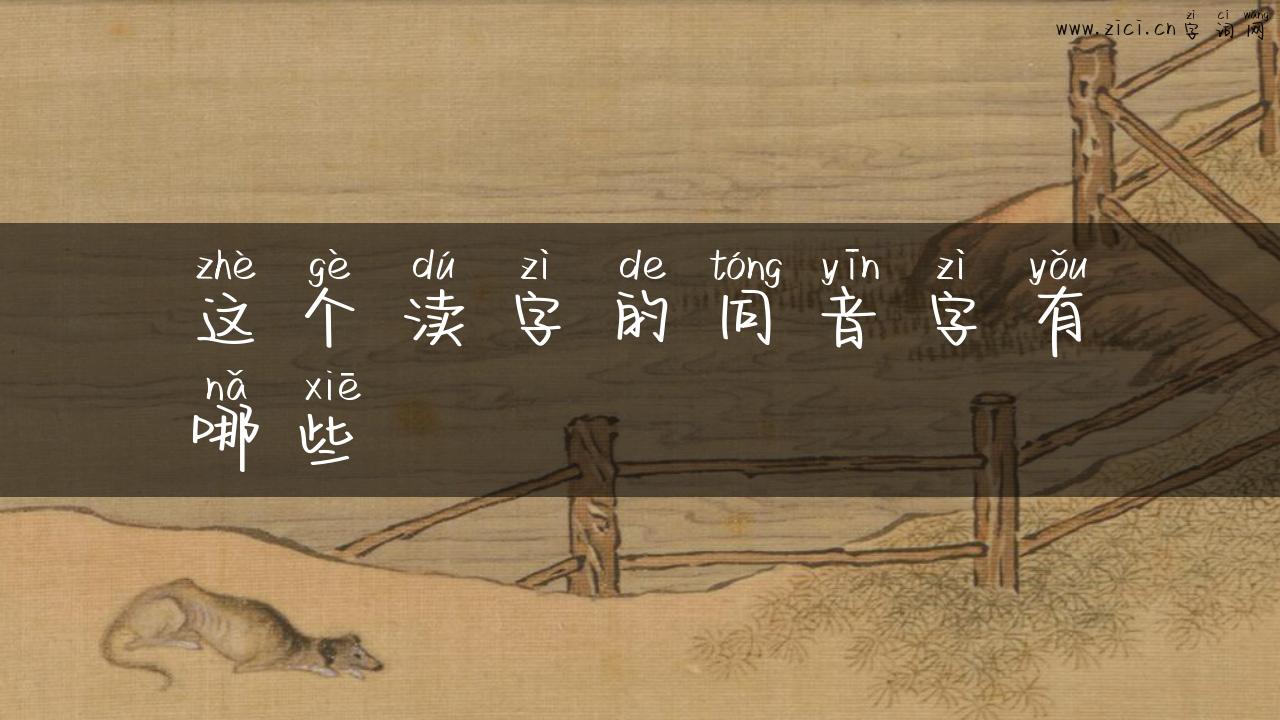 zì cí wǎng
www.zici.cn 字词网
zhè gè dú zì de tóng yīn zì yǒu
这个渎字的同音字有
nǎ xiē
哪些